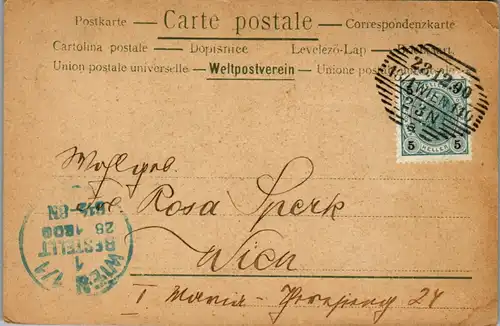 Postkarte — Carte postale — Correspondenzkarte
Cartolina postale — Dopisnice — Levelező-Lap
Union postale universelle — Weltpostverein — Unione postale
23.12.90
WIEN
5 HELLER 5
Wohlgeb
Rosa Sperk
Wien
I Maria-
24
WIEN 1/1
1
BESTELLT